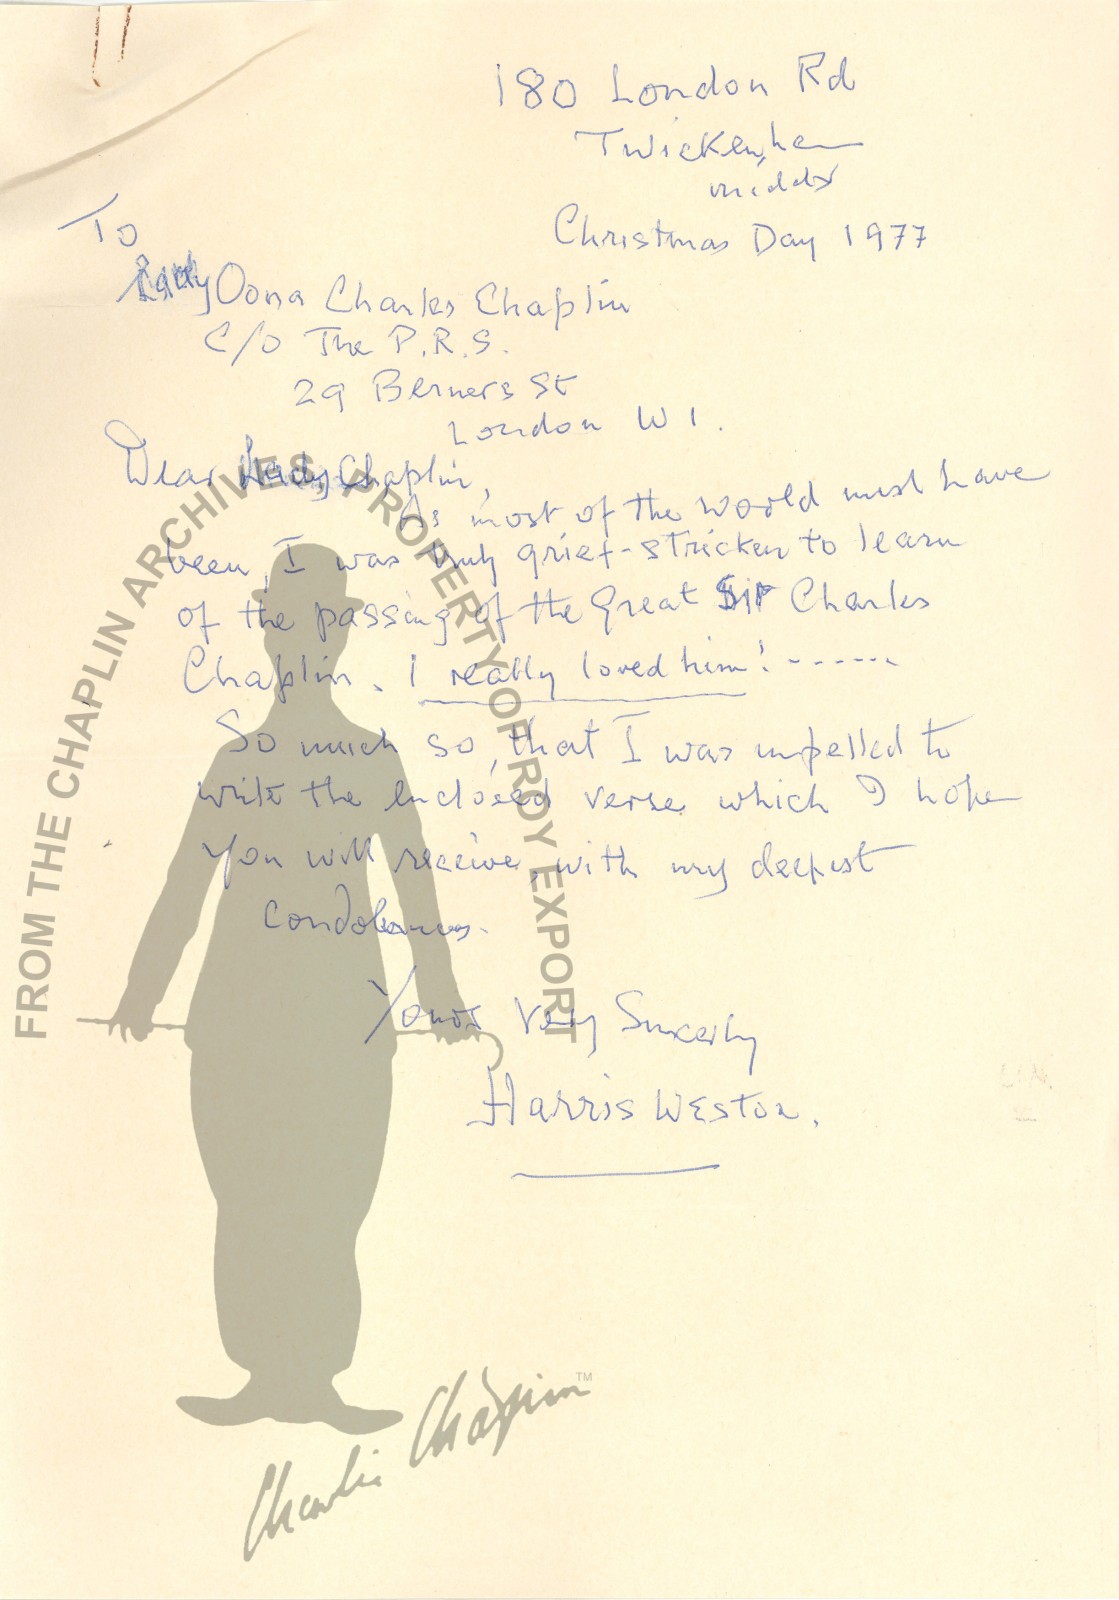 180 London Rd
Twickenham
Middx
Christmas Day 1977
To
Lady Oona Charles Chaplin
C/O The P.R.S.
29 Berners St
London W1.
Dear Lady Chaplin,
As most of the world must have
been, I was truly grief-stricken to learn
of the passing of the great Sir Charles
Chaplin. I really loved him! ------
So much so, that I was impelled to
write the enclosed verse which I hope
you will receive, with my deepest
condolences.
Yours Very Sincerely
Harris Weston.
FROM THE CHAPLIN ARCHIVES, PROPERTY OF ROY EXPORT
Charlie Chaplin TM